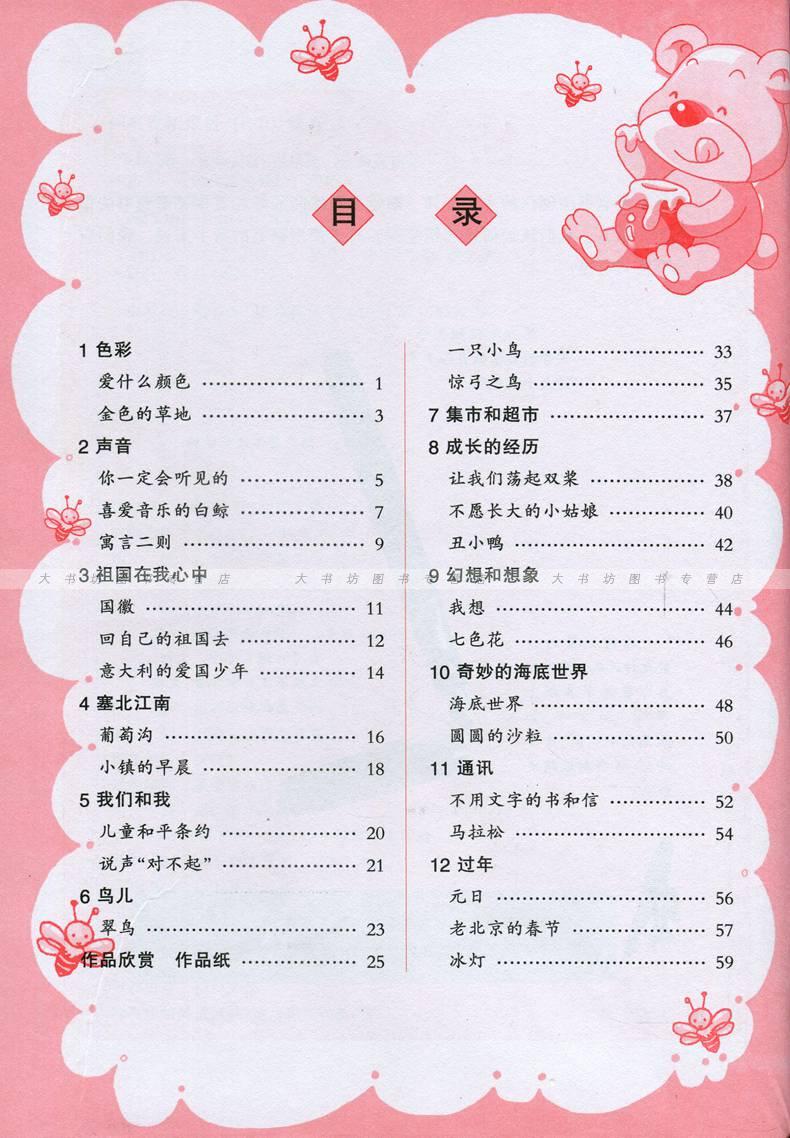 目 录
1 色彩
爱什么颜色 …………………… 1
金色的草地 …………………… 3
2 声音
你一定会听见的 …………………… 5
喜爱音乐的白鲸 …………………… 7
寓言二则 …………………… 9
3 祖国在我心中
大书坊图书专营店 大书坊图书专营店 大书坊图书专营店
国徽 …………………… 11
回自己的祖国去 …………………… 12
意大利的爱国少年 …………………… 14
4 塞北江南
葡萄沟 …………………… 16
小镇的早晨 …………………… 18
5 我们和我
儿童和平条约 …………………… 20
说声“对不起” …………………… 21
6 鸟儿
翠鸟 …………………… 23
作品欣赏 作品纸 …………………… 25
一只小鸟 …………………… 33
惊弓之鸟 …………………… 35
7 集市和超市 …………………… 37
8 成长的经历
让我们荡起双桨 …………………… 38
不愿长大的小姑娘 …………………… 40
丑小鸭 …………………… 42
9 幻想和想象
我想 …………………… 44
七色花 …………………… 46
10 奇妙的海底世界
海底世界 …………………… 48
圆圆的沙粒 …………………… 50
11 通讯
不用文字的书和信 …………………… 52
马拉松 …………………… 54
12 过年
元日 …………………… 56
老北京的春节 …………………… 57
冰灯 …………………… 59